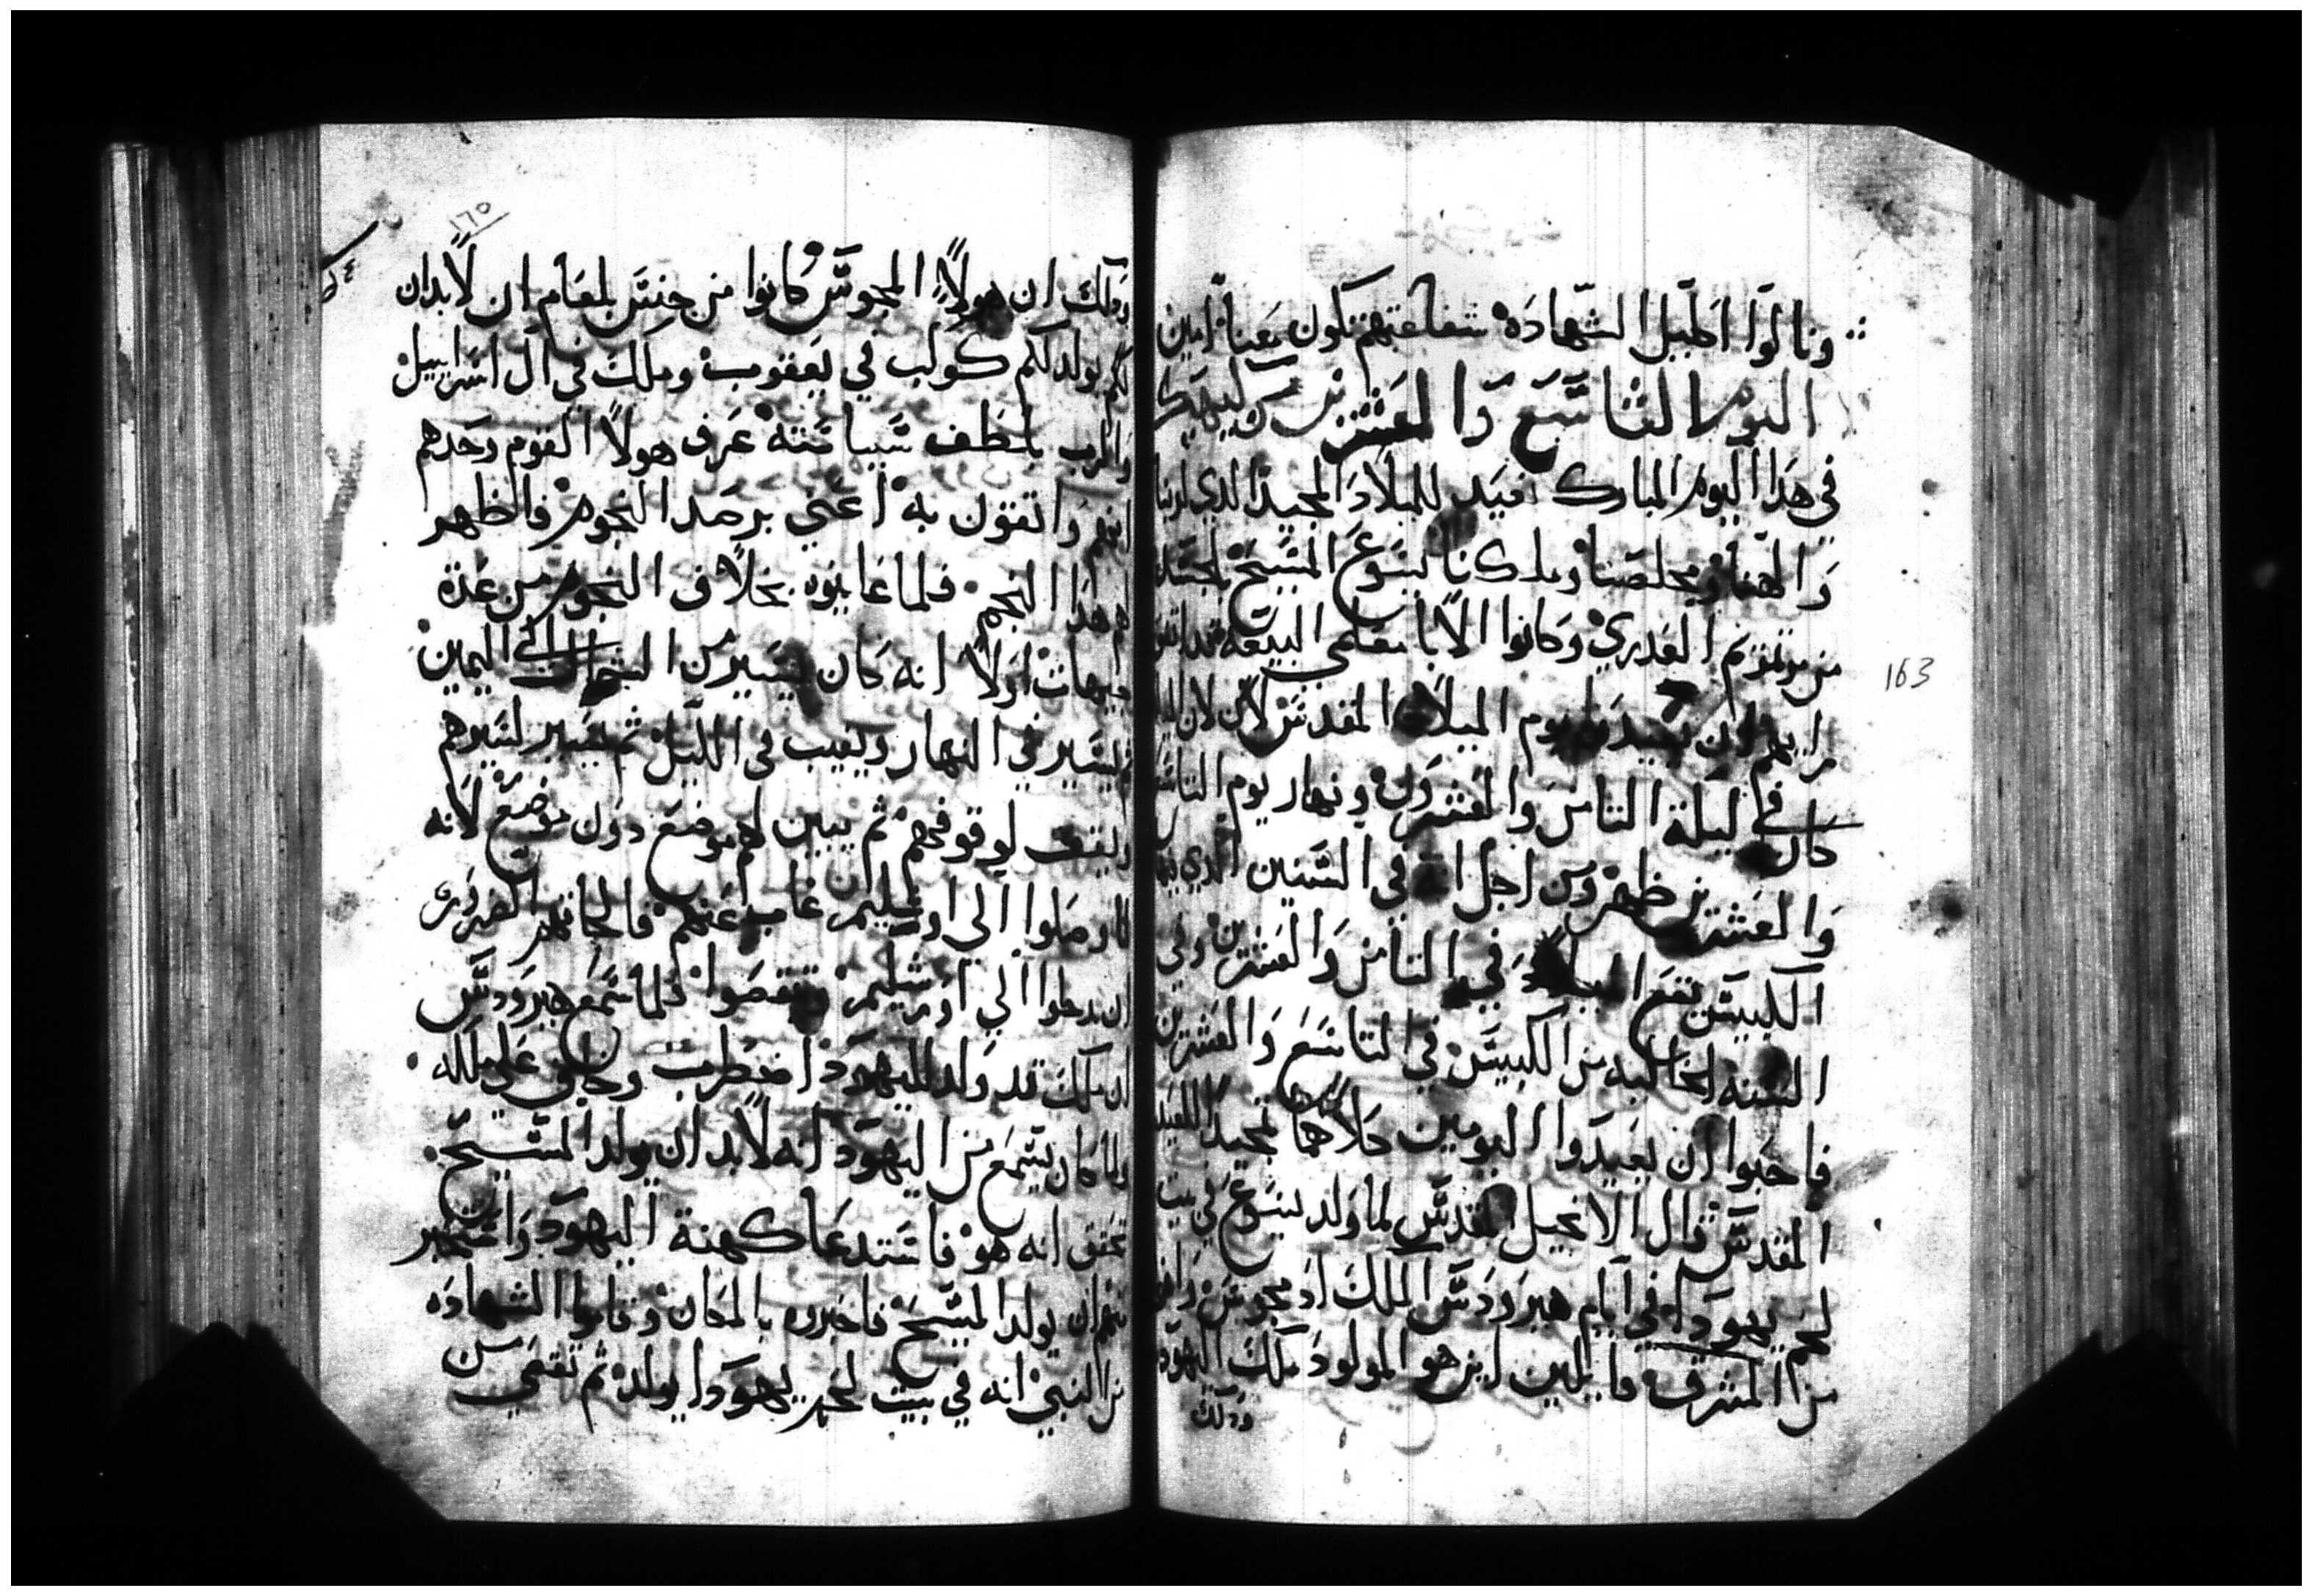 ونالوا اكليل الشهادة شفاعتهم تكون معنا امين
اليوم التاسع والعشرين من كيهك
في هذا اليوم المبارك نعيد للميلاد المجيد الذي لربنا
والهنا ومخلصنا وملكنا يسوع المسيح المتجسد
من مرتمريم العدري وكانوا الابا معلمي البيعه
رايهم ان يوم الميلاد المقدس لان
كان في ليلة الثامن والعشرون ونهار يوم التاسع
والعشرين ظهر ومن اجل انه في السنين الذي فيها
الكبيس يقع الميلاد في الثامن والعشرين وفي
السنه الخاليه من الكبيس في التاسع والعشرين
فاحبوا ان يعيدوا اليومين كلاهما تمجيدا للعيد
المقدس قال الانجيل المقدس لما ولد يسوع في بيت
لحم يهودا في ايام هيرودس الملك اد مجوس وافوا
من المشرق قايلين اين هو المولود ملك اليهود
ودلك
163
١٦٥
ودلك ان هولاً المجوس كانوا من جنس بلعام ان لابد ان
يولد لكم كوكب في يعقوب وملك في ال اسراييل
والرب بلطف سياسته عرف هولا القوم وحدهم
وا تقول به اعني برصد النجوم فاظهر
لهم هذا النجم فلما عاينوه بخلاف النجوم من عدة
جهات اولاً انه كان يسير من الشمال الي اليمين
ويسير في النهار ويغيب في الليل ثم يسير لسيرهم
ويقف لوقوفهم ثم يبين لهم موضع دون موضع لانه
لما وصلوا الي اورشليم غاب عنهم فالجاتهم الضروره
ان يدخلوا الي اورشليم ويفحصوا فلما سمع هيرودس
ان ملك قد ولد لليهود اضطرب وخاف علي ملكه
ولما كان يسمع من اليهود انه لابد ان يولد المسيح
تحقق انه هو فاستدعا كهنة اليهود واستخبر
منهم اين يولد المسيح فاخبروه بالمكان وقالوا الشهاده
من النبي انه في بيت لحم يهودا يولد ثم تقصي من